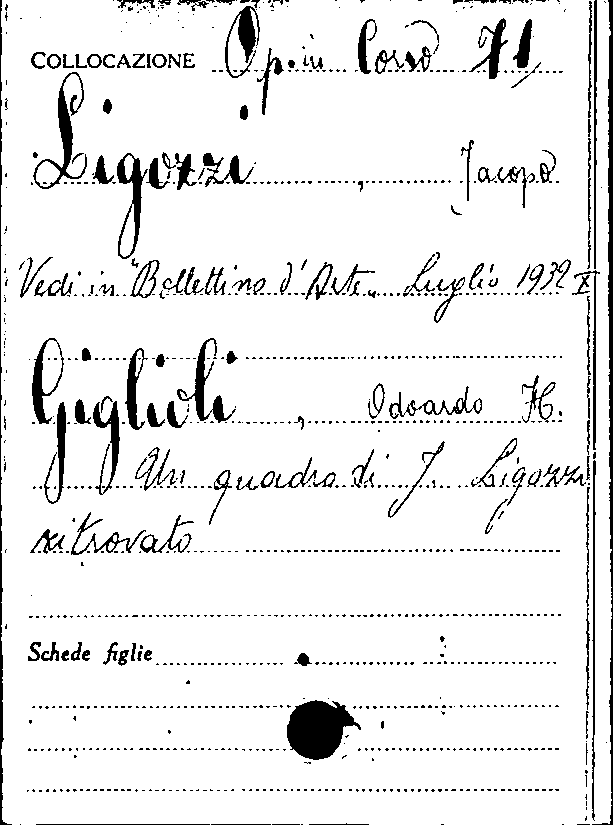 COLLOCAZIONE Op. in Corso 71
Ligozzi, Jacopo
Vedi in "Bollettino d'Arte„ Luglio 1932 X
Giglioli, Odoardo H.
Un quadro di J. Ligozzi
ritrovato
Schede figlie